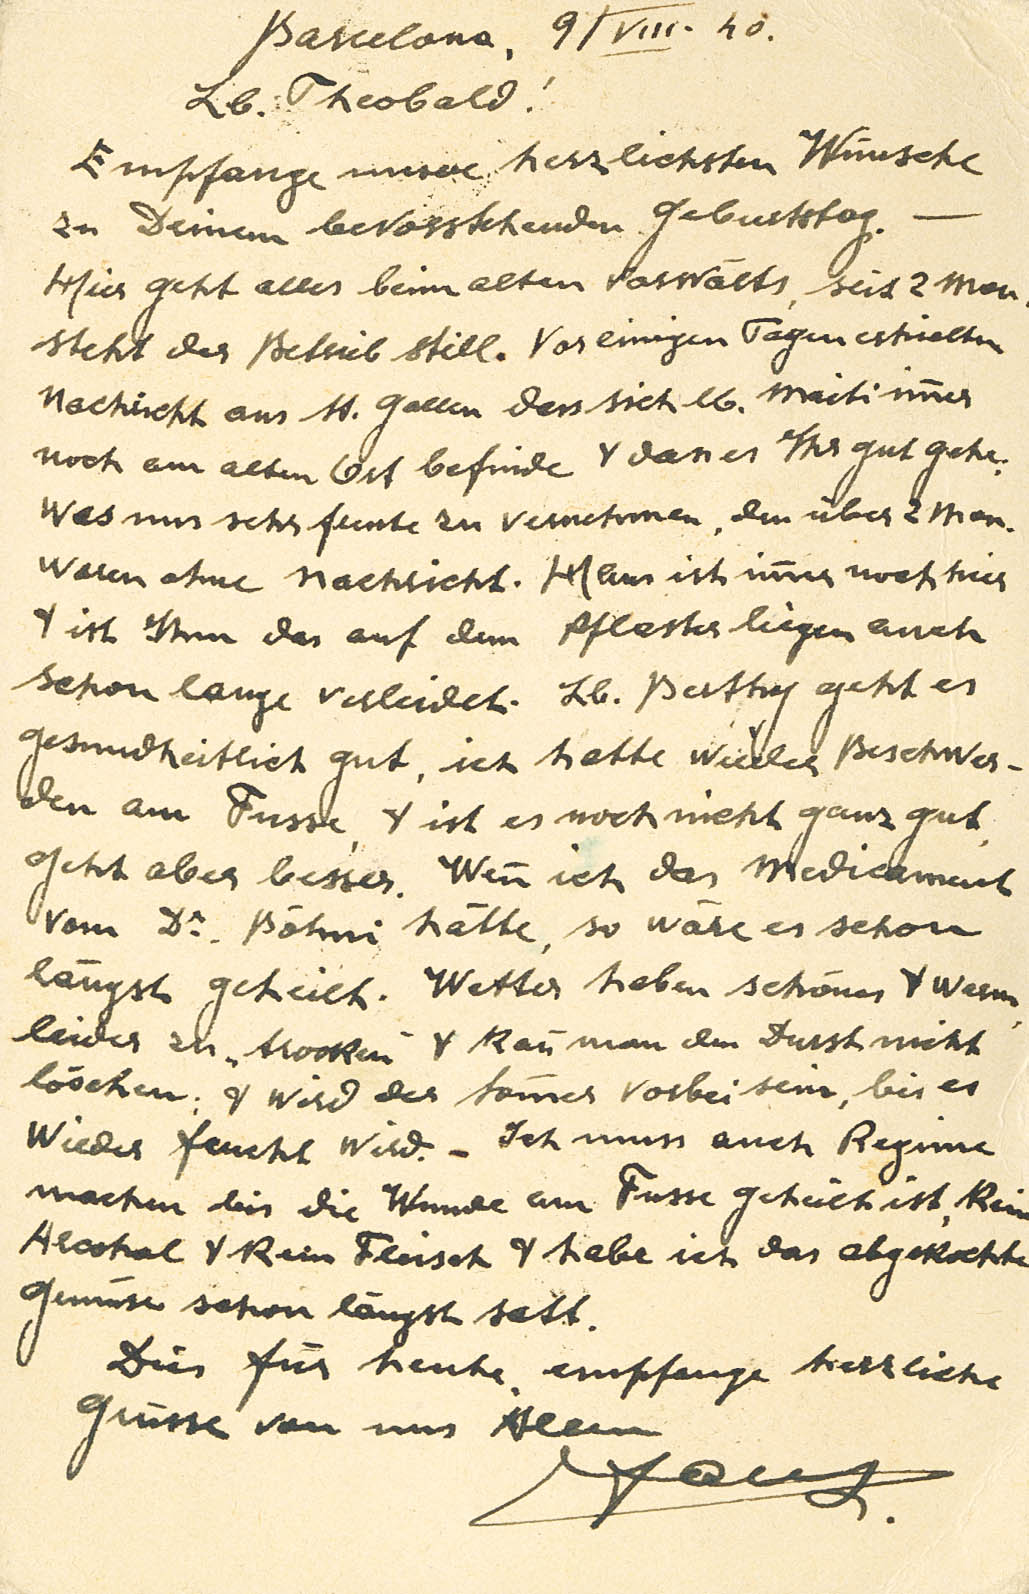 Barcelona, 9/VIII. 40.
Lb. Theobald!
Empfange unsere herzlichsten Wünsche
zu Deinem bevorstehenden Geburtstag. —
Hier geht alles beim alten vorwälts, seit 2 Mon.
steht der Betrieb still. Vor einigen Tagen erhielten
Nachricht aus St. Gallen dass sich lb. im̄er
noch am alten Ort befinde & dass es Ihr gut gehe.
Was uns sehr freute zu vernehmen, den über 2 Mon.
waren ohne Nachricht. Hans ist im̄er noch hier
& ist Ihm das auf dem Pflaster liegen auch
schon lange verleidet. Lb. Berthy geht es
gesundheitlich gut, ich hatte wieder Beschwer-
den am Fusse, & ist es noch nicht ganz gut,
geht aber besser. Wen̄ ich das Medicament
vom Dr. Böhni hätte, so wäre es schon
längst geheilt. Wetter haben schönes & warm,
leider zu „trocken" & kan̄ man den Durst nicht
löschen; & wird der Som̄er vorbei sein, bis es
wieder feucht wird. – Ich muss auch Regime
machen bis die Wunde am Fusse geheilt ist, Kein
Alcohol & Kein Fleisch & habe ich das abgekochte
Gemüse schon längst satt.
Dies für heute, empfange herzliche
Grüsse von uns Allen